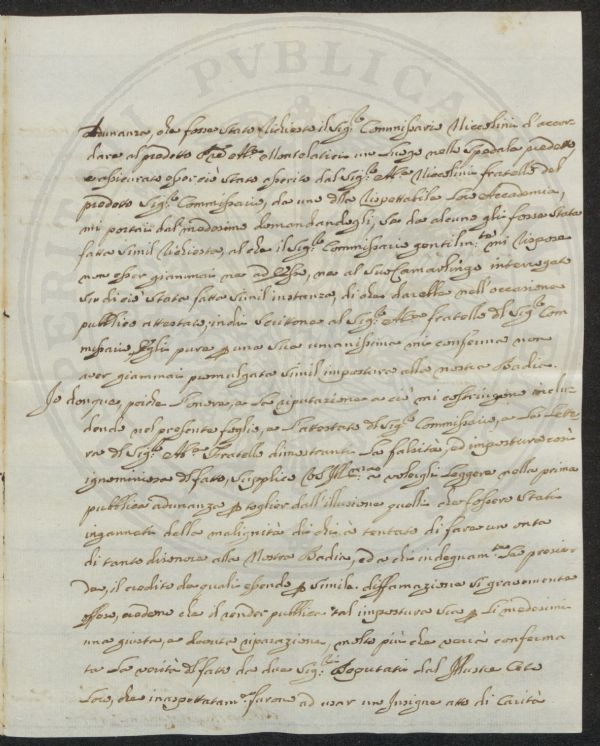 Adunanza, che fosse stato richiesto il Sig.re Commissario Niccolini d'accor
dare al predetto Pre Ab.e Montelatici un luogo nello Spedale predetto
e assicurato esser ciò stato asserito dal Sig.re Ab.e Niccolini fratello del
predetto Sig.re Commissario, da uno della Rispettabile Loro Accademia,
mi portai dal medesimo domandandogli, se da alcuno gli fosse stata
fatta simil richiesta, al che il Sig.re Commissario gentilm.te mi rispose
non esser giammai ne ad Esso, ne al suo Camarlingo interrogato
se di ciò stata fatta simil instanza, di che darebbe nell'occasione
pubblico attestato, indi scrittone al Sig.re Ab.e fratello del Sig.re Com
missario, Egli pure per una sua umanissima mi conferma non
aver giammai promulgata simil impostura alla nostra Badia.
Io dunque, perche l'onore, e la riputazione a ciò mi costringono inclu
dendo nel presente foglio, e l'attestato del Sig.re Commissario, e la Lette
ra del Sig.re Ab.e Fratello dimostranti la falsità, ed impostura così
ignominiosa del fatto, supplico VS Ill.ma a volergli leggere nella prima
pubblica adunanza per toglier dall'illusione quelli che fossero stati
ingannati della malignità di chi à tentato di fare un onta
di tanto disonore alla Nostra Badia, ed a chi indegnam.te la presie
de, il credito de quali essendo per simile diffamazione sì gravemente
offeso, credono che il render pubblica tal impostura sia per li medesimi
una giusta, e dovuta riparazione, molto più che verrà conferma
ta la verità del fatto da due Sig.ri Deputati dal Illustre Ceto
Loro, che inaspettatam.e furono ad usar un Insigne atto di Carità
PVBLICA